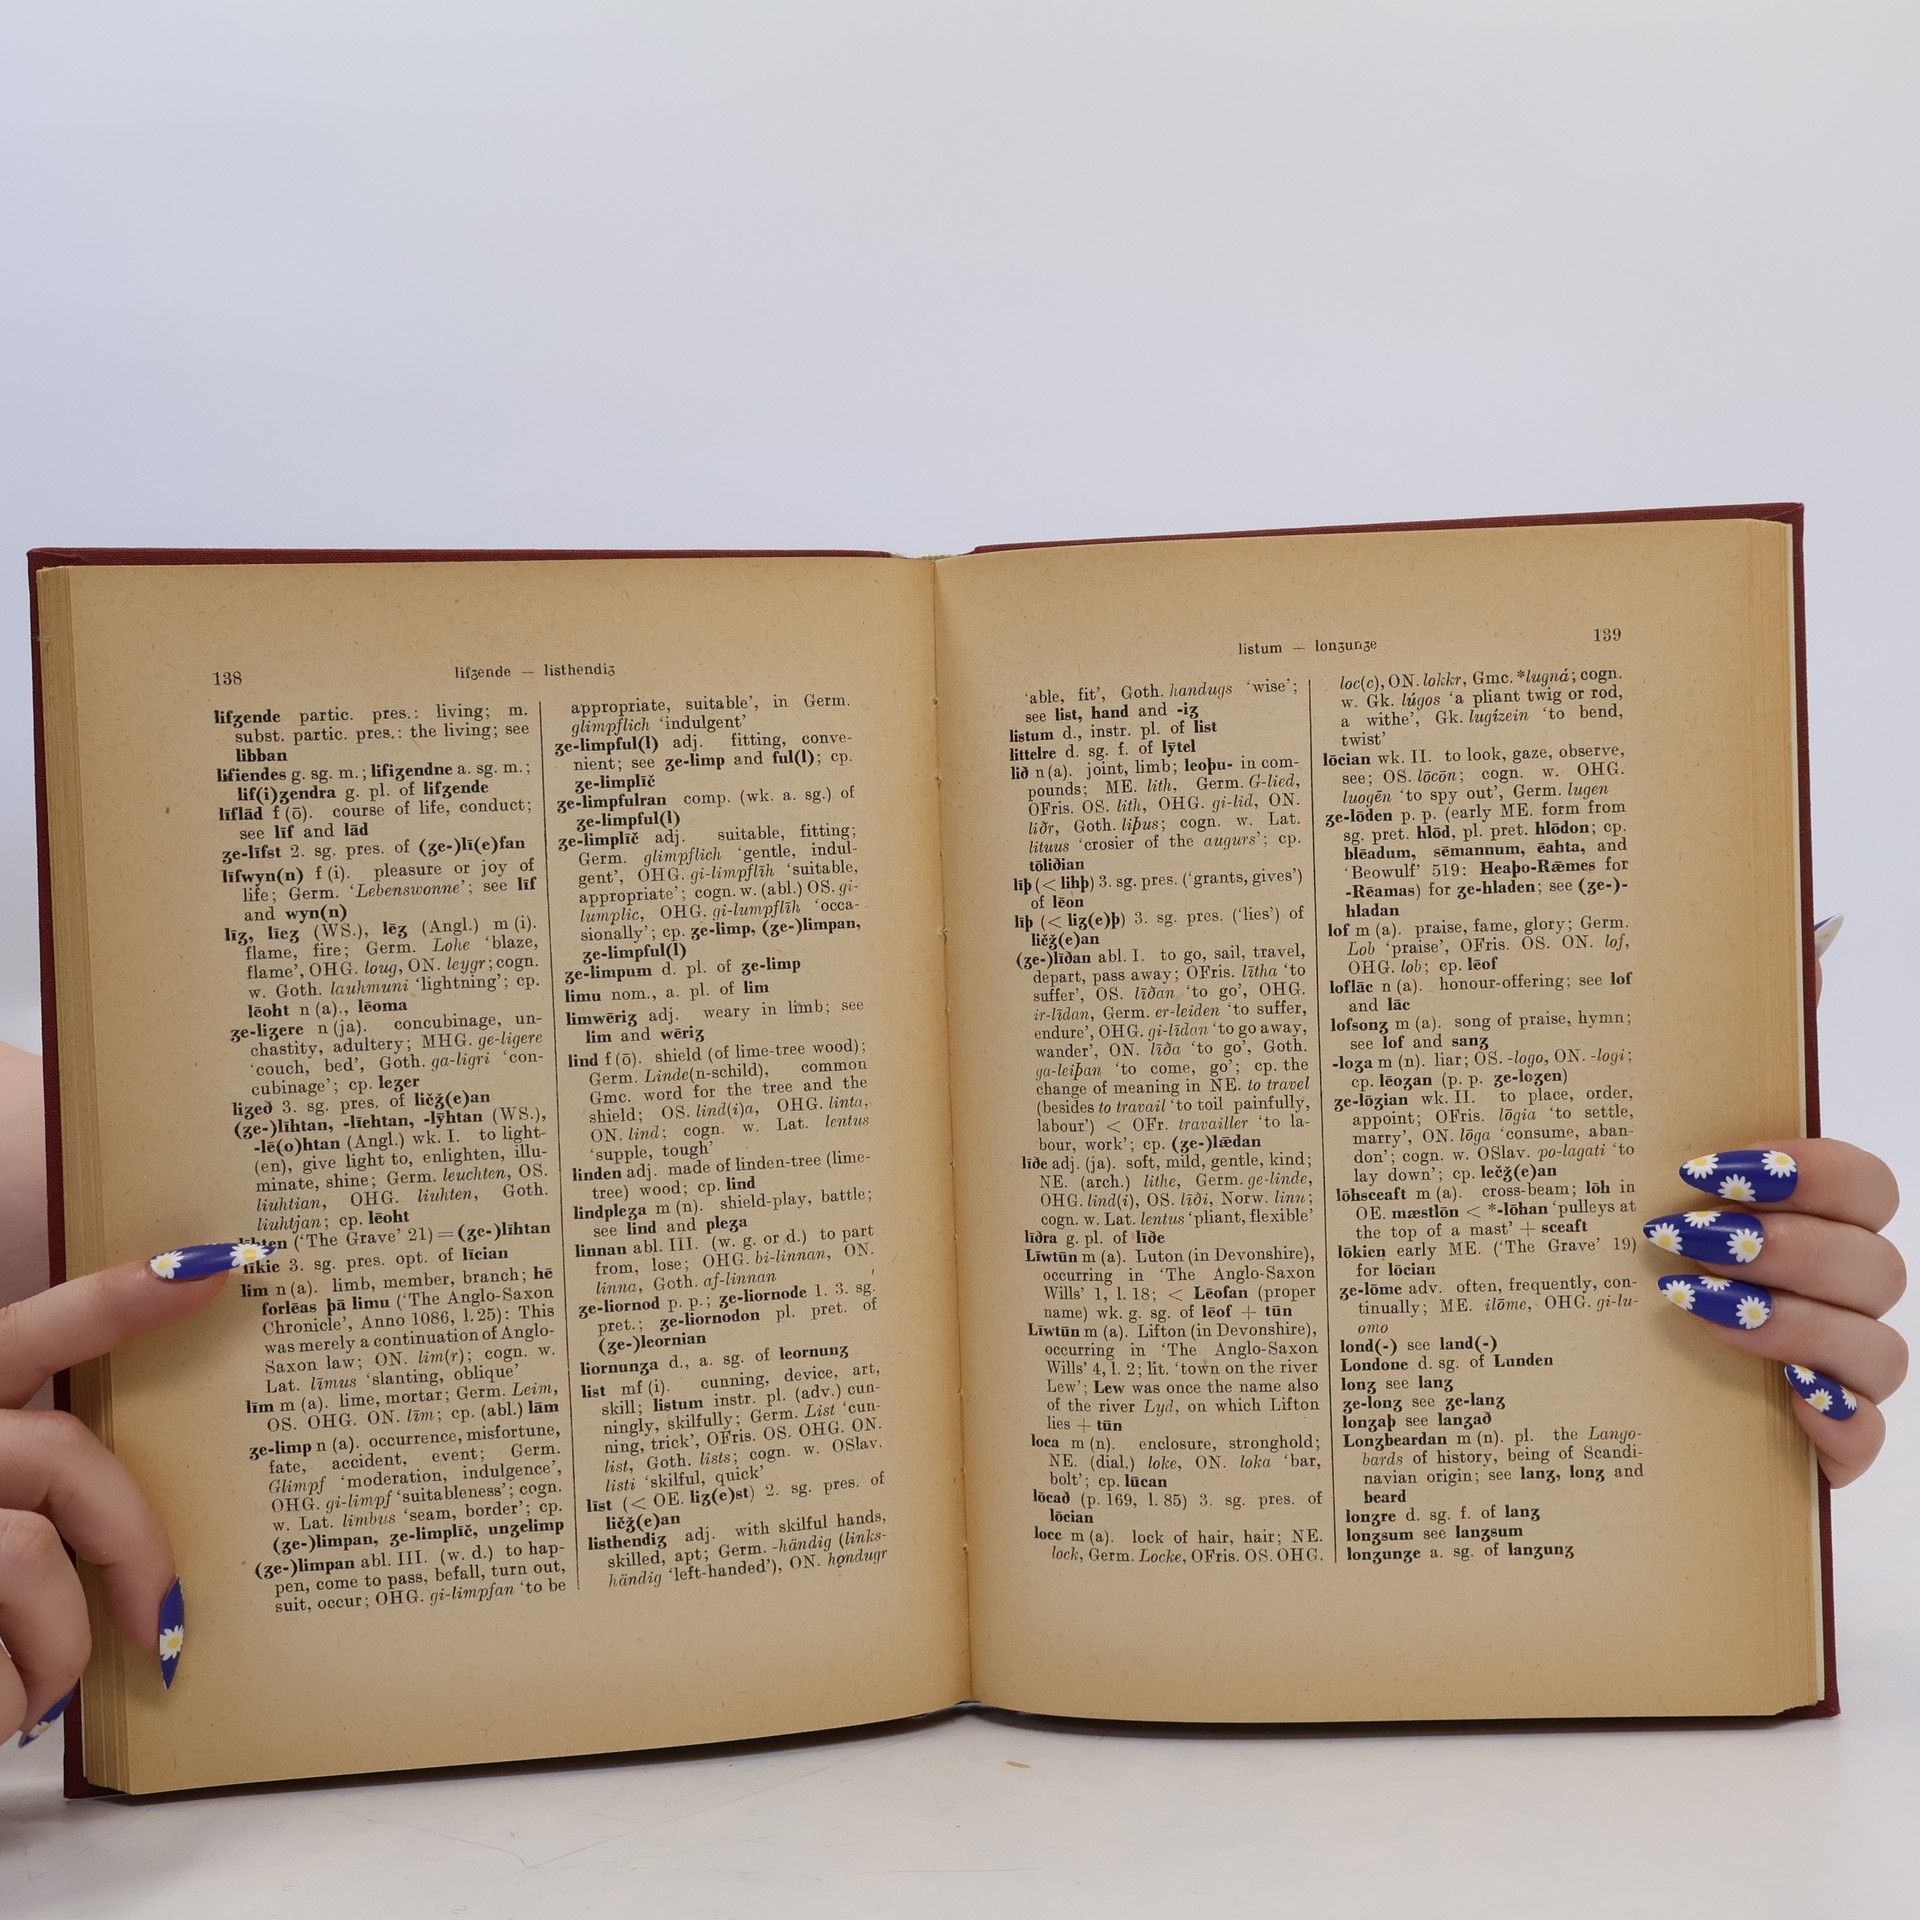 138
lifʒende — listhendiʒ
lifʒende partic. pres.: living; m.
subst. partic. pres.: the living; see
libban
lifiendes g. sg. m.; lifiʒendne a. sg. m.;
lif(i)ʒendra g. pl. of lifʒende
līflād f (ō). course of life, conduct;
see līf and lād
ʒe-līfst 2. sg. pres. of (ʒe-)lī(e)fan
līfwyn(n) f (i). pleasure or joy of
life; Germ. ‘Lebenswonne’; see līf
and wyn(n)
līʒ, līeʒ (WS.), lēʒ (Angl.) m (i).
flame, fire; Germ. Lohe ‘blaze,
flame’, OHG. loug, ON. leygr; cogn.
w. Goth. lauhmuni ‘lightning’; cp.
lēoht n (a)., lēoma
ʒe-liʒere n (ja). concubinage, un-
chastity, adultery; MHG. ge-ligere
‘couch, bed’, Goth. ga-ligri ‘con-
cubinage’; cp. leʒer
liʒeð 3. sg. pres. of ličǯ(e)an
(ʒe-)līhtan, -līehtan, -lȳhtan (WS.),
-lē(o)htan (Angl.) wk. I. to light-
(en), give light to, enlighten, illu-
minate, shine; Germ. leuchten, OS.
liuhtian, OHG. liuhten, Goth.
liuhtjan; cp. lēoht
līhten (‘The Grave’ 21) = (ʒe-)līhtan
līkie 3. sg. pres. opt. of līcian
lim n (a). limb, member, branch; hē
forlēas þā limu (‘The Anglo-Saxon
Chronicle’, Anno 1086, l. 25): This
was merely a continuation of Anglo-
Saxon law; ON. lim(r); cogn. w.
Lat. līmus ‘slanting, oblique’
līm m (a). lime, mortar; Germ. Leim,
OS. OHG. ON. līm; cp. (abl.) lām
ʒe-limp n (a). occurrence, misfortune,
fate, accident, event; Germ.
Glimpf ‘moderation, indulgence’,
OHG. gi-limpf ‘suitableness’; cogn.
w. Lat. limbus ‘seam, border’; cp.
(ʒe-)limpan, ʒe-limplīč, unʒelimp
(ʒe-)limpan abl. III. (w. d.) to hap-
pen, come to pass, befall, turn out,
suit, occur; OHG. gi-limpfan ‘to be
appropriate, suitable’, in Germ.
glimpflich ‘indulgent’
ʒe-limpful(l) adj. fitting, conve-
nient; see ʒe-limp and ful(l); cp.
ʒe-limplīč
ʒe-limpfulran comp. (wk. a. sg.) of
ʒe-limpful(l)
ʒe-limplīč adj. suitable, fitting;
Germ. glimpflich ‘gentle, indul-
gent’, OHG. gi-limpflīh ‘suitable,
appropriate’; cogn. w. (abl.) OS. gi-
lumplic, OHG. gi-lumpflīh ‘occa-
sionally’; cp. ʒe-limp, (ʒe-)limpan,
ʒe-limpful(l)
ʒe-limpum d. pl. of ʒe-limp
limu nom., a. pl. of lim
limwēriʒ adj. weary in limb; see
lim and wēriʒ
lind f (ō). shield (of lime-tree wood);
Germ. Linde(n-schild), common
Gmc. word for the tree and the
shield; OS. lind(i)a, OHG. linta,
ON. lind; cogn. w. Lat. lentus
‘supple, tough’
linden adj. made of linden-tree (lime-
tree) wood; cp. lind
lindpleʒa m (n). shield-play, battle;
see lind and pleʒa
linnan abl. III. (w. g. or d.) to part
from, lose; OHG. bi-linnan, ON.
linna, Goth. af-linnan
ʒe-liornod p. p.; ʒe-liornode 1. 3. sg.
pret.; ʒe-liornodon pl. pret. of
(ʒe-)leornian
liornunʒa d., a. sg. of leornunʒ
list mf (i). cunning, device, art,
skill; listum instr. pl. (adv.) cun-
ningly, skilfully; Germ. List ‘cun-
ning, trick’, OFris. OS. OHG. ON.
list, Goth. lists; cogn. w. OSlav.
listi ‘skilful, quick’
līst (< OE. liʒ(e)st) 2. sg. pres. of
ličǯ(e)an
listhendiʒ adj. with skilful hands,
skilled, apt; Germ. -händig (links-
händig ‘left-handed’), ON. hǫndugr
listum — lonʒunʒe
139
‘able, fit’, Goth. handugs ‘wise’;
see list, hand and -iʒ
listum d., instr. pl. of list
littelre d. sg. f. of lȳtel
lið n (a). joint, limb; leoþu- in com-
pounds; ME. lith, Germ. G-lied,
OFris. OS. lith, OHG. gi-lid, ON.
liðr, Goth. liþus; cogn. w. Lat.
lituus ‘crosier of the augurs’; cp.
tōliðian
līþ (< lihþ) 3. sg. pres. (‘grants, gives’)
of lēon
līþ (< liʒ(e)þ) 3. sg. pres. (‘lies’) of
ličǯ(e)an
(ʒe-)līðan abl. I. to go, sail, travel,
depart, pass away; OFris. lītha ‘to
suffer’, OS. līðan ‘to go’, OHG.
ir-līdan, Germ. er-leiden ‘to suffer,
endure’, OHG. gi-līdan ‘to go away,
wander’, ON. līða ‘to go’, Goth.
ga-leiþan ‘to come, go’; cp. the
change of meaning in NE. to travel
(besides to travail ‘to toil painfully,
labour’) < OFr. travailler ‘to la-
bour, work’; cp. (ʒe-)lǣdan
līðe adj. (ja). soft, mild, gentle, kind;
NE. (arch.) lithe, Germ. ge-linde,
OHG. lind(i), OS. līði, Norw. linn;
cogn. w. Lat. lentus ‘pliant, flexible’
līðra g. pl. of līðe
Līwtūn m (a). Luton (in Devonshire),
occurring in ‘The Anglo-Saxon
Wills’ 1, l. 18; < Lēofan (proper
name) wk. g. sg. of lēof + tūn
Līwtūn m (a). Lifton (in Devonshire),
occurring in ‘The Anglo-Saxon
Wills’ 4, l. 2; lit. ‘town on the river
Lew’; Lew was once the name also
of the river Lyd, on which Lifton
lies + tūn
loca m (n). enclosure, stronghold;
NE. (dial.) loke, ON. loka ‘bar,
bolt’; cp. lūcan
lōcað (p. 169, l. 85) 3. sg. pres. of
lōcian
locc m (a). lock of hair, hair; NE.
lock, Germ. Locke, OFris. OS. OHG.
loc(c), ON. lokkr, Gmc. *lugná; cogn.
w. Gk. lúgos ‘a pliant twig or rod,
a withe’, Gk. lugízein ‘to bend,
twist’
lōcian wk. II. to look, gaze, observe,
see; OS. lōcōn; cogn. w. OHG.
luogēn ‘to spy out’, Germ. lugen
ʒe-lōden p. p. (early ME. form from
sg. pret. hlōd, pl. pret. hlōdon; cp.
blēadum, sēmannum, ēahta, and
‘Beowulf’ 519: Heaþo-Rǣmes for
-Rēamas) for ʒe-hladen; see (ʒe-)-
hladan
lof m (a). praise, fame, glory; Germ.
Lob ‘praise’, OFris. OS. ON. lof,
OHG. lob; cp. lēof
loflāc n (a). honour-offering; see lof
and lāc
lofsonʒ m (a). song of praise, hymn;
see lof and sanʒ
-loʒa m (n). liar; OS. -logo, ON. -logi;
cp. lēoʒan (p. p. ʒe-loʒen)
ʒe-lōʒian wk. II. to place, order,
appoint; OFris. lōgia ‘to settle,
marry’, ON. lōga ‘consume, aban-
don’; cogn. w. OSlav. po-lagati ‘to
lay down’; cp. lečǯ(e)an
lōhsceaft m (a). cross-beam; lōh in
OE. mæstlōn < *-lōhan ‘pulleys at
the top of a mast’ + sceaft
lōkien early ME. (‘The Grave’ 19)
for lōcian
ʒe-lōme adv. often, frequently, con-
tinually; ME. ilōme, OHG. gi-lu-
omo
lond(-) see land(-)
Londone d. sg. of Lunden
lonʒ see lanʒ
ʒe-lonʒ see ʒe-lanʒ
lonʒaþ see lanʒað
Lonʒbeardan m (n). pl. the Lango-
bards of history, being of Scandi-
navian origin; see lanʒ, lonʒ and
beard
lonʒre d. sg. f. of lanʒ
lonʒsum see lanʒsum
lonʒunʒe a. sg. of lanʒunʒ